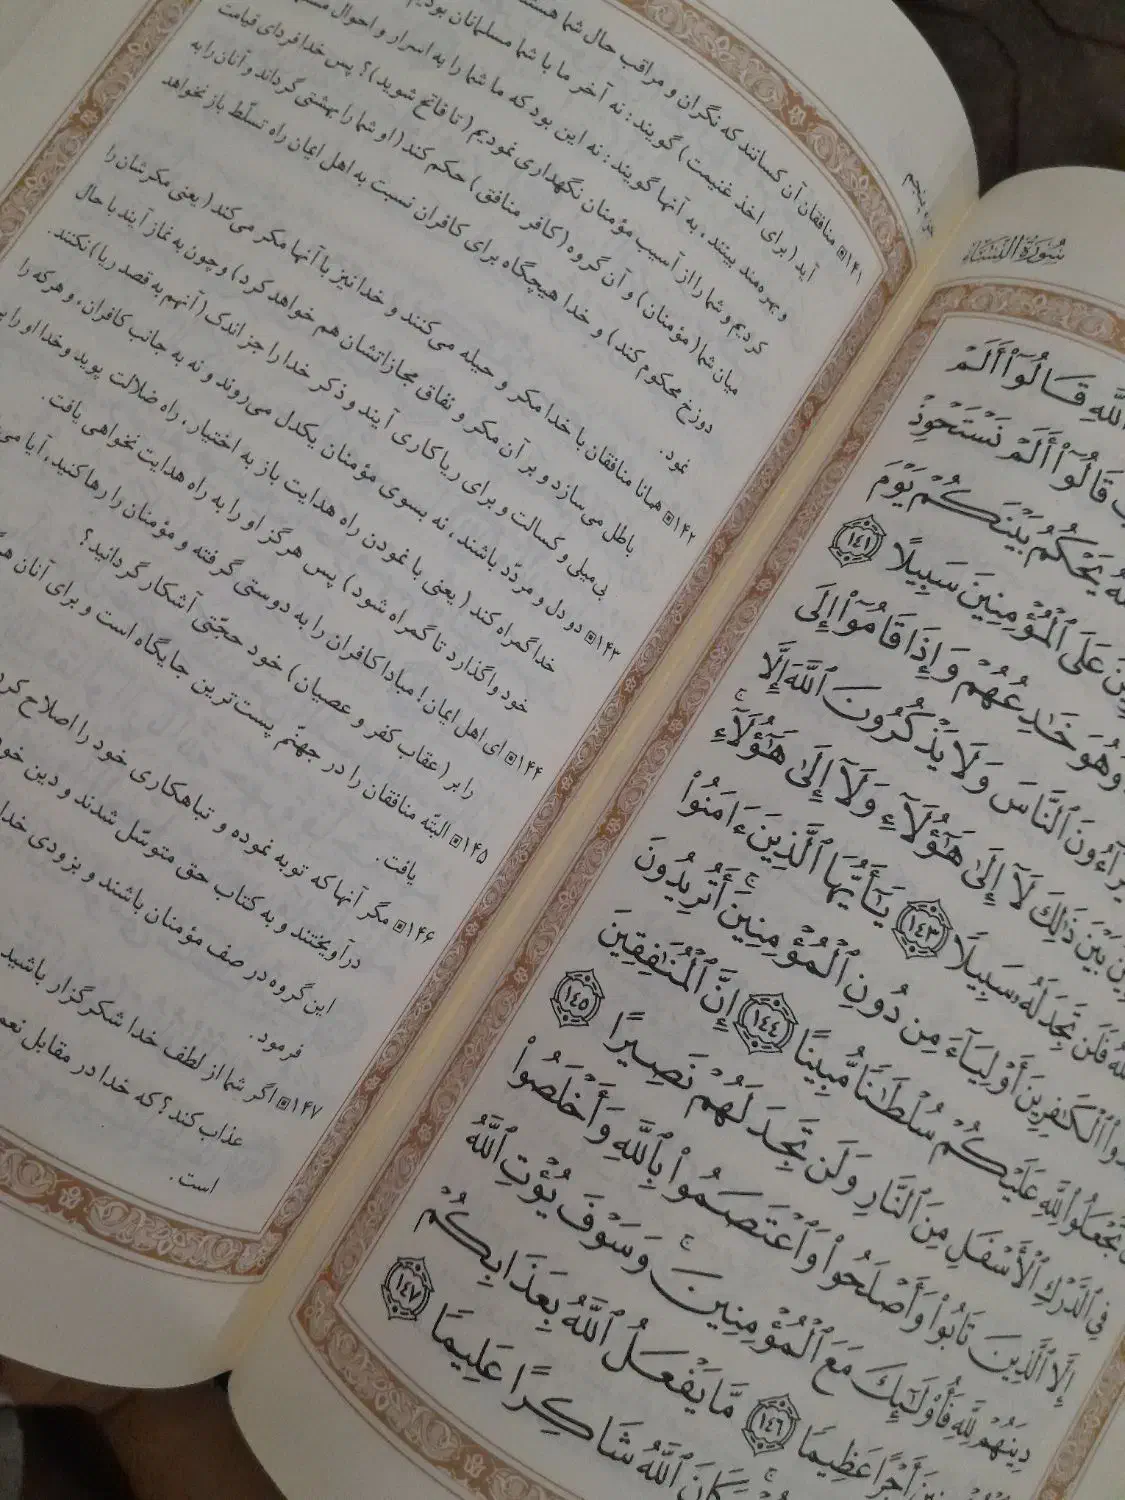 سُورَةُ النِّسَاءِ
ٱللَّهِ قَالُوٓا۟ أَلَمْ
قَالُوٓا۟ أَلَمْ نَسْتَحْوِذْ
يَحْكُمُ بَيْنَكُمْ يَوْمَ
عَلَى ٱلْمُؤْمِنِينَ سَبِيلًا ١٤١
وَهُوَ خَٰدِعُهُمْ وَإِذَا قَامُوٓا۟ إِلَى
يُرَآءُونَ ٱلنَّاسَ وَلَا يَذْكُرُونَ ٱللَّهَ إِلَّا
بَيْنَ ذَٰلِكَ لَآ إِلَىٰ هَٰٓؤُلَآءِ وَلَآ إِلَىٰ هَٰٓؤُلَآءِ
فَلَن تَجِدَ لَهُۥ سَبِيلًا ١٤٣ يَٰٓأَيُّهَا ٱلَّذِينَ ءَامَنُوا۟
ٱلْكَٰفِرِينَ أَوْلِيَآءَ مِن دُونِ ٱلْمُؤْمِنِينَ أَتُرِيدُونَ
تَجْعَلُوا۟ لِلَّهِ عَلَيْكُمْ سُلْطَٰنًا مُّبِينًا ١٤٤ إِنَّ ٱلْمُنَٰفِقِينَ
فِى ٱلدَّرْكِ ٱلْأَسْفَلِ مِنَ ٱلنَّارِ وَلَن تَجِدَ لَهُمْ نَصِيرًا ١٤٥
إِلَّا ٱلَّذِينَ تَابُوا۟ وَأَصْلَحُوا۟ وَٱعْتَصَمُوا۟ بِٱللَّهِ وَأَخْلَصُوا۟
دِينَهُمْ لِلَّهِ فَأُو۟لَٰٓئِكَ مَعَ ٱلْمُؤْمِنِينَ وَسَوْفَ يُؤْتِ ٱللَّهُ
أَجْرًا عَظِيمًا ١٤٦ مَّا يَفْعَلُ ٱللَّهُ بِعَذَابِكُمْ
كَانَ ٱللَّهُ شَاكِرًا عَلِيمًا ١٤٧
جزء پنجم
۱۴۱ منافقان آن کسانند که نگران و مراقب حال شما هستند
آید (برای اخذ غنیمت) گویند: نه آخر ما با شما مسلمانان بودیم
و بهره‌مند بینند، به آنها گویند: نه این بود که ما شما را به اسرار و احوال
کردیم و شما را از آسیب مؤمنان نگهداری نمودیم (تا فاتح شوید)؟ پس خدا فردای قیامت
میان شما (مؤمنان) و آن گروه (کافر منافق) حکم کند (او شما را بهشتی گرداند و آنان را به
دوزخ محکوم کند) و خدا هیچگاه برای کافران نسبت به اهل ایمان راه تسلّط باز نخواهد
نمود.
۱۴۲ همانا منافقان با خدا مکر و حیله می‌کنند و خدا نیز با آنها مکر می‌کند (یعنی مکرشان را
باطل می‌سازد و بر آن مکر و نفاق مجازاتشان هم خواهد کرد) و چون به نماز آیند با حال
بی‌میلی و کسالت و برای ریاکاری آیند و ذکر خدا را جز اندک (آنهم به قصد ریا) نکنند.
۱۴۳ دو دل و مردّد باشند، نه بسوی مؤمنان یکدل می‌روند و نه به جانب کافران، و هر که را
خدا گمراه کند (یعنی با نمودن راه هدایت باز به اختیار، راه ضلالت پوید و خدا او را
خود واگذارد تا گمراه شود) پس هرگز او را به راه هدایت نخواهی یافت.
۱۴۴ ای اهل ایمان! مبادا کافران را به دوستی گرفته و مؤمنان را رها کنید، آیا
را بر (عقاب کفر و عصیان) خود حجّتی آشکار گردانید؟
۱۴۵ البتّه منافقان را در جهنّم پست‌ترین جایگاه است و برای آنان
یافت.
۱۴۶ مگر آنها که توبه نموده و تباهکاری خود را اصلاح
درآویختند و به کتاب حق متوسّل شدند و دین
این گروه در صف مؤمنان باشند و بزودی خدا
فرمود.
۱۴۷ اگر شما از لطف خدا شکرگزار باشید
عذاب کند؟ که خدا در مقابل
است.